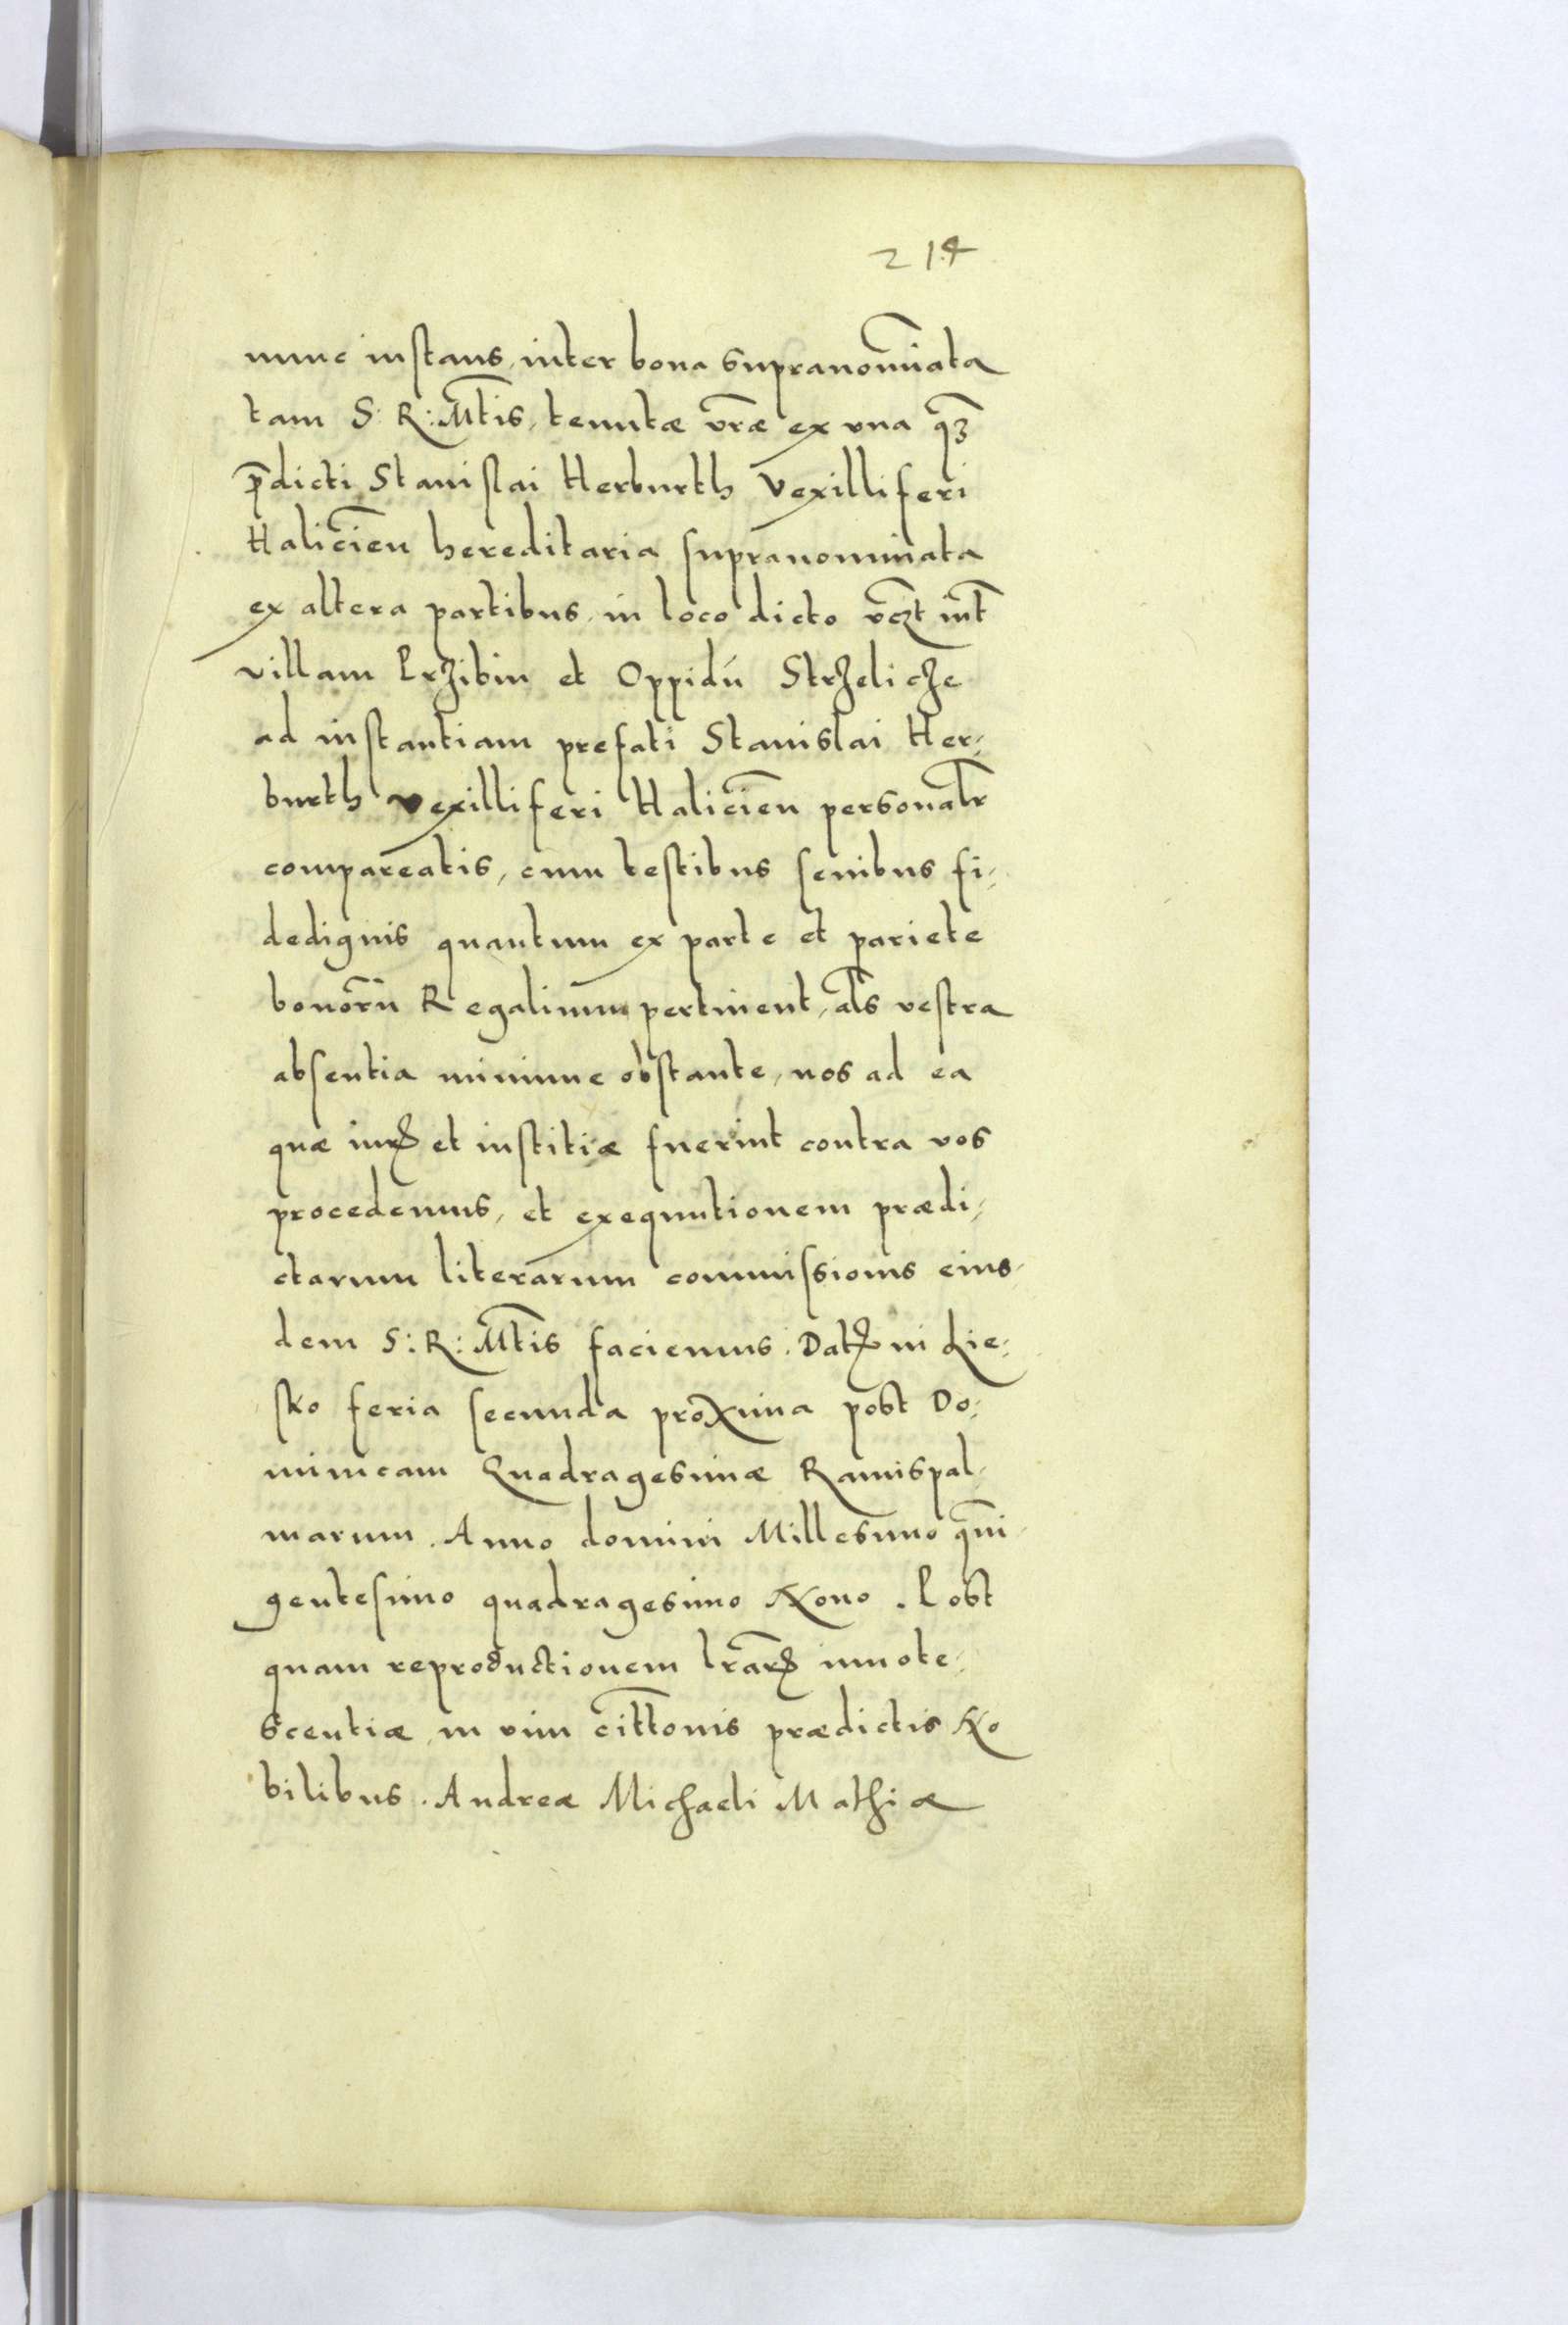 214
nunc instans, inter bona supranom̄inata
tam S: R: Mt̄is, tenutæ vr̄æ ex vna qꝫ̄
p̄dicti Stanislai Herburth Vexilliferi
Halicień hereditaria supranominata
ex altera partibus, in loco dicto vcꝫt int̄
villam Przibin et Oppidú Strzelicze
ad instantiam prefati Stanislai Her-
burth Vexilliferi Halicień personalr̄
compareatis, cum testibus senibus fi-
dedignis quantum ex parte et pariete
bonor̄u Regalium pertinent, al̄s vestra
absentia minime obstante, nos ad ea
quæ iurꝭ et iustitiæ fuerint contra vos
procedemus, et exequutionem prædi-
ctarum literarum commissionis eius-
dem S: R: Mt̄is faciemus. Datꝭ in Lie-
sko feria secunda proxima post Do-
minicam Quadragesimæ Ramispal-
marum. Anno domini Millesimo qūin-
gentesimo quadragesimo Nono. Post
quam reproductionem lr̄arꝭ innote-
scentiæ, in vim citt̄onis prædictis No
bilibus. Andreæ Michaeli Mathiæ